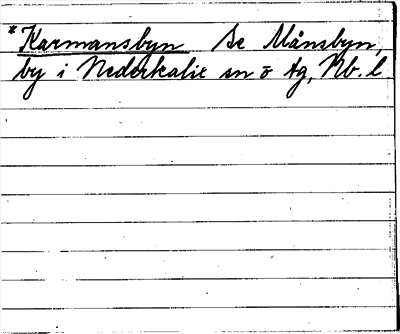 *Karmansbyn Se Månsbyn,
by i Nederkalix sn o tg, Nb. l